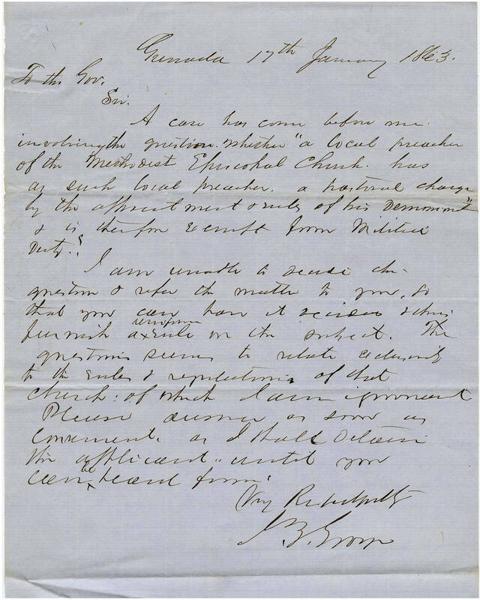 Grenada 17th January 1863.
To the Gov.
Sir.
A case has come before me
involving the question. whether "a local preacher
of the Methodist Episcopal Church. has
as such local preacher. a pastoral charge
by the appointment & rules of his Denomination
& is therefore exempt from Militia
Duty."?
I am unable to decide the
question & refer the matter to you, so
that you can have it decided & thus
furnish a uniform rule on the subject. The
question seems to relate exclusively
to the rules & regulations of that
Church: of which I am ignorant
Please answer as soon as
Convenient. as I shall detain
the applicant. until you
can be heard from.
Very Respectfully